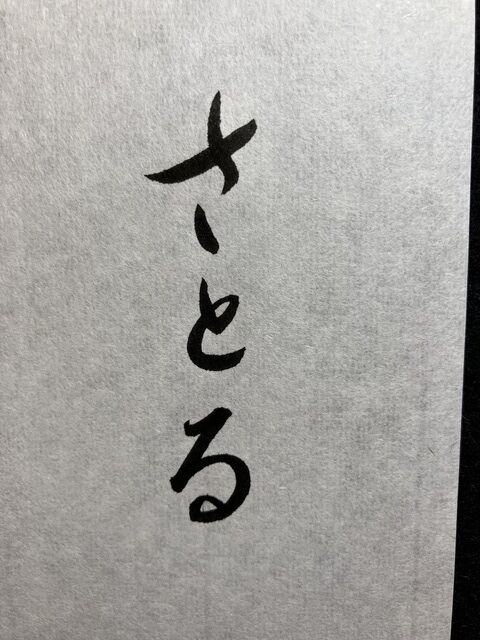 さとる